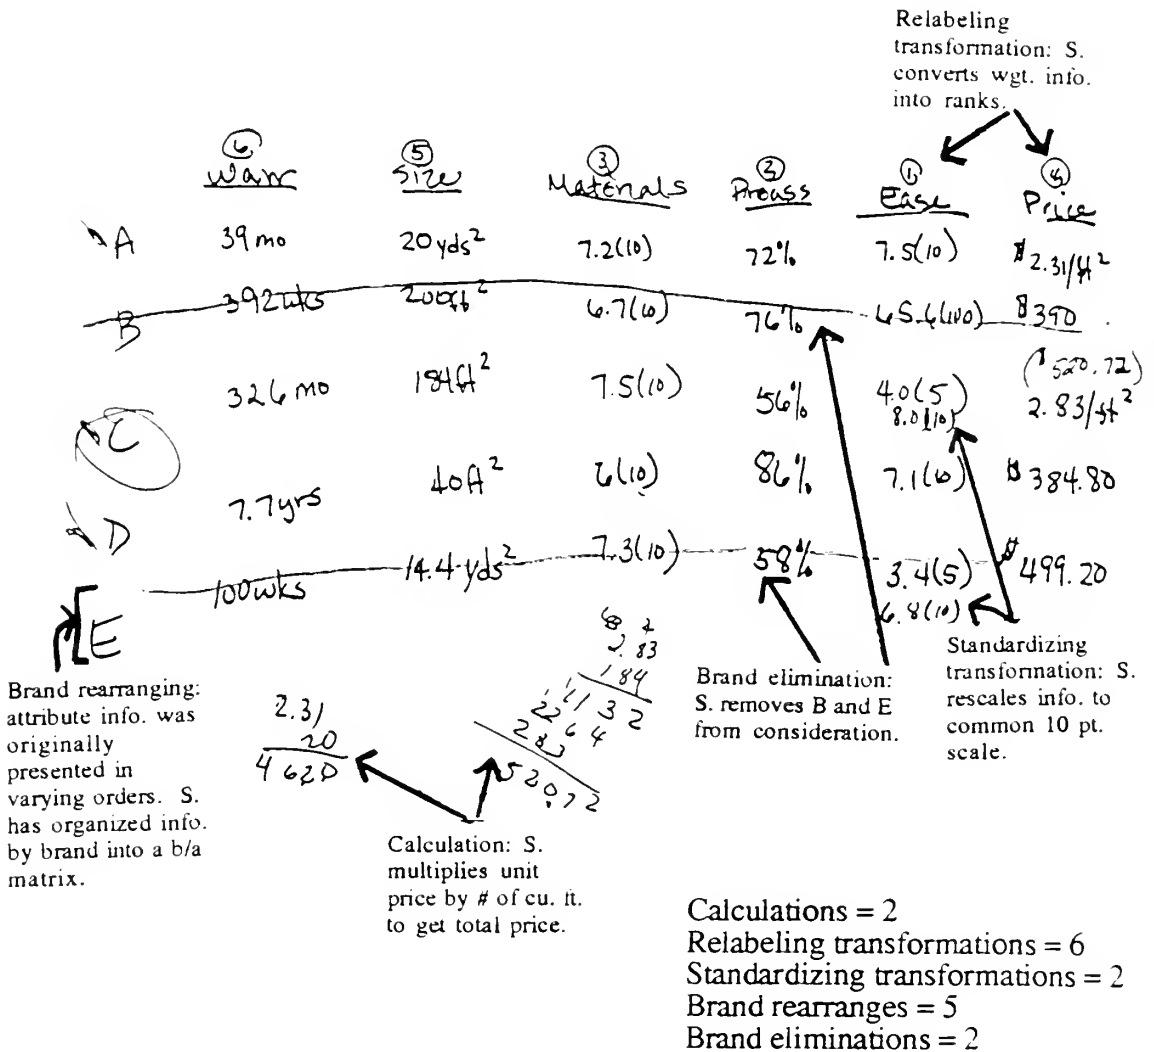 Relabeling
transformation: S.
converts wgt. info.
into ranks.
⑥ ⑤ ③ ② ① ④
Warr Size Materials Process Ease Price
A 39 mo 20 yds² 7.2(10) 72% 7.5(10) $2.31/ft²
B 392 wks 200 ft² 6.7(10) 76% 65.6(100) $390
($520.72)
C 326 mo 184 ft² 7.5(10) 56% 4.0(5) 2.83/ft²
8.0(10)
D 7.7 yrs 40 ft² 6(10) 86% 7.1(10) $384.80
E 100 wks 14.4 yds² 7.3(10) 58% 3.4(5) $499.20
6.8(10)
2.83
184
1132
2264
283
520.72
2.31
20
4620
Brand rearranging:
attribute info. was
originally
presented in
varying orders. S.
has organized info.
by brand into a b/a
matrix.
Calculation: S.
multiplies unit
price by # of cu. ft.
to get total price.
Brand elimination:
S. removes B and E
from consideration.
Standardizing
transformation: S.
rescales info. to
common 10 pt.
scale.
Calculations = 2
Relabeling transformations = 6
Standardizing transformations = 2
Brand rearranges = 5
Brand eliminations = 2